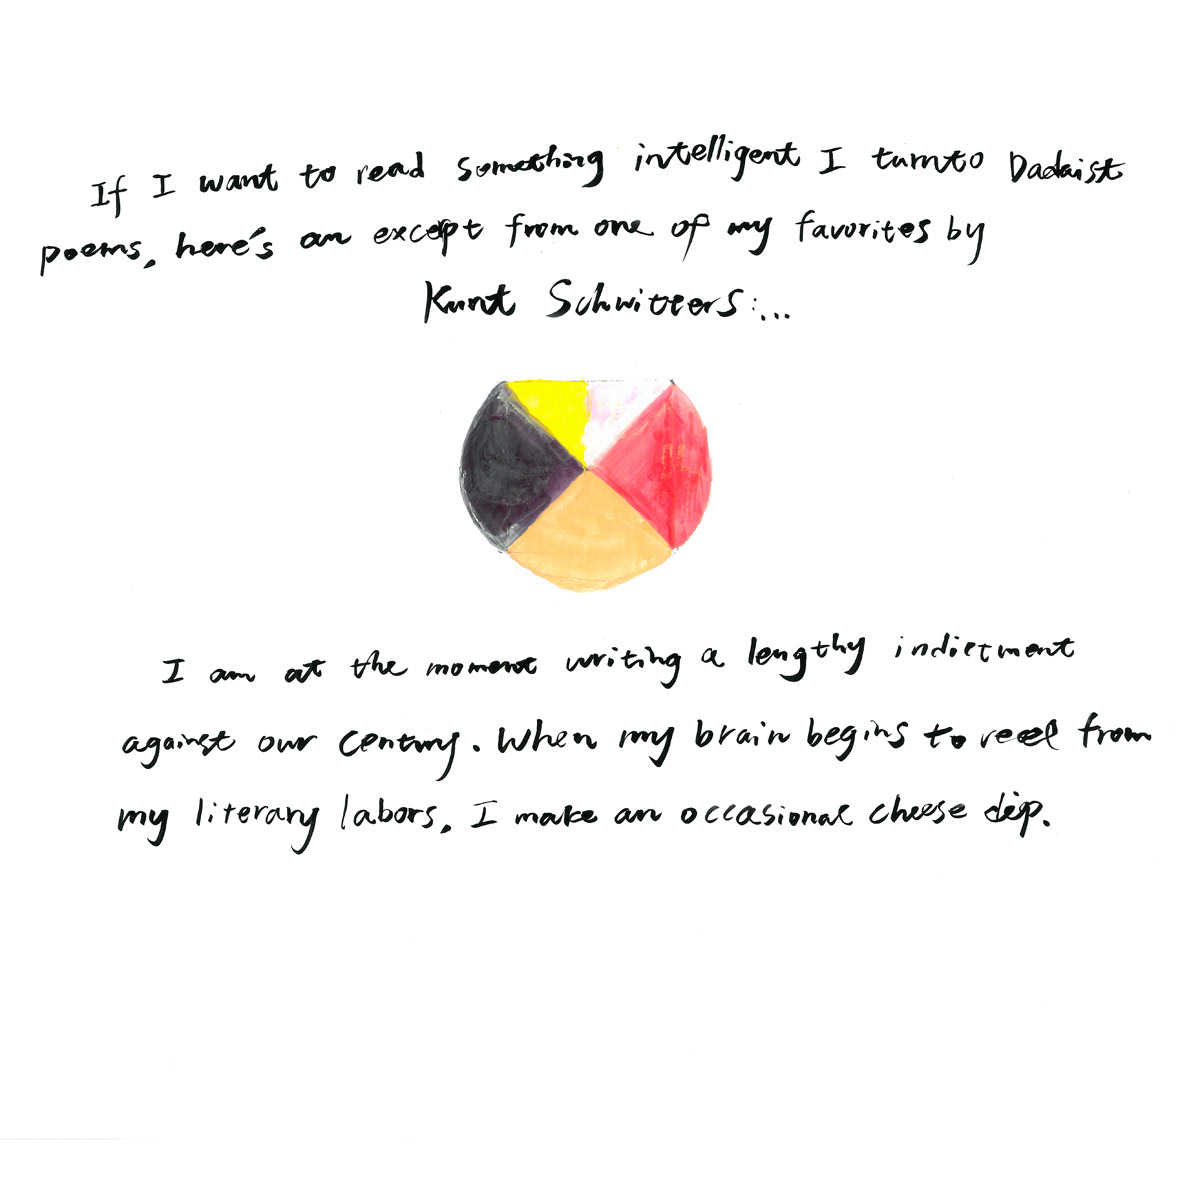 If I want to read something intelligent I turn to Dadaist
poems, here's an except from one of my favorites by
Kurt Schwitters:...
I am at the moment writing a lengthy indictment
against our century. When my brain begins to reel from
my literary labors, I make an occasional cheese dip.